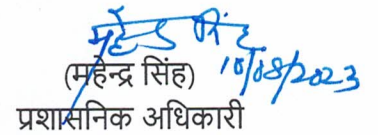 महेन्द्र सिंह
10/08/2023
(महेन्द्र सिंह)
प्रशासनिक अधिकारी